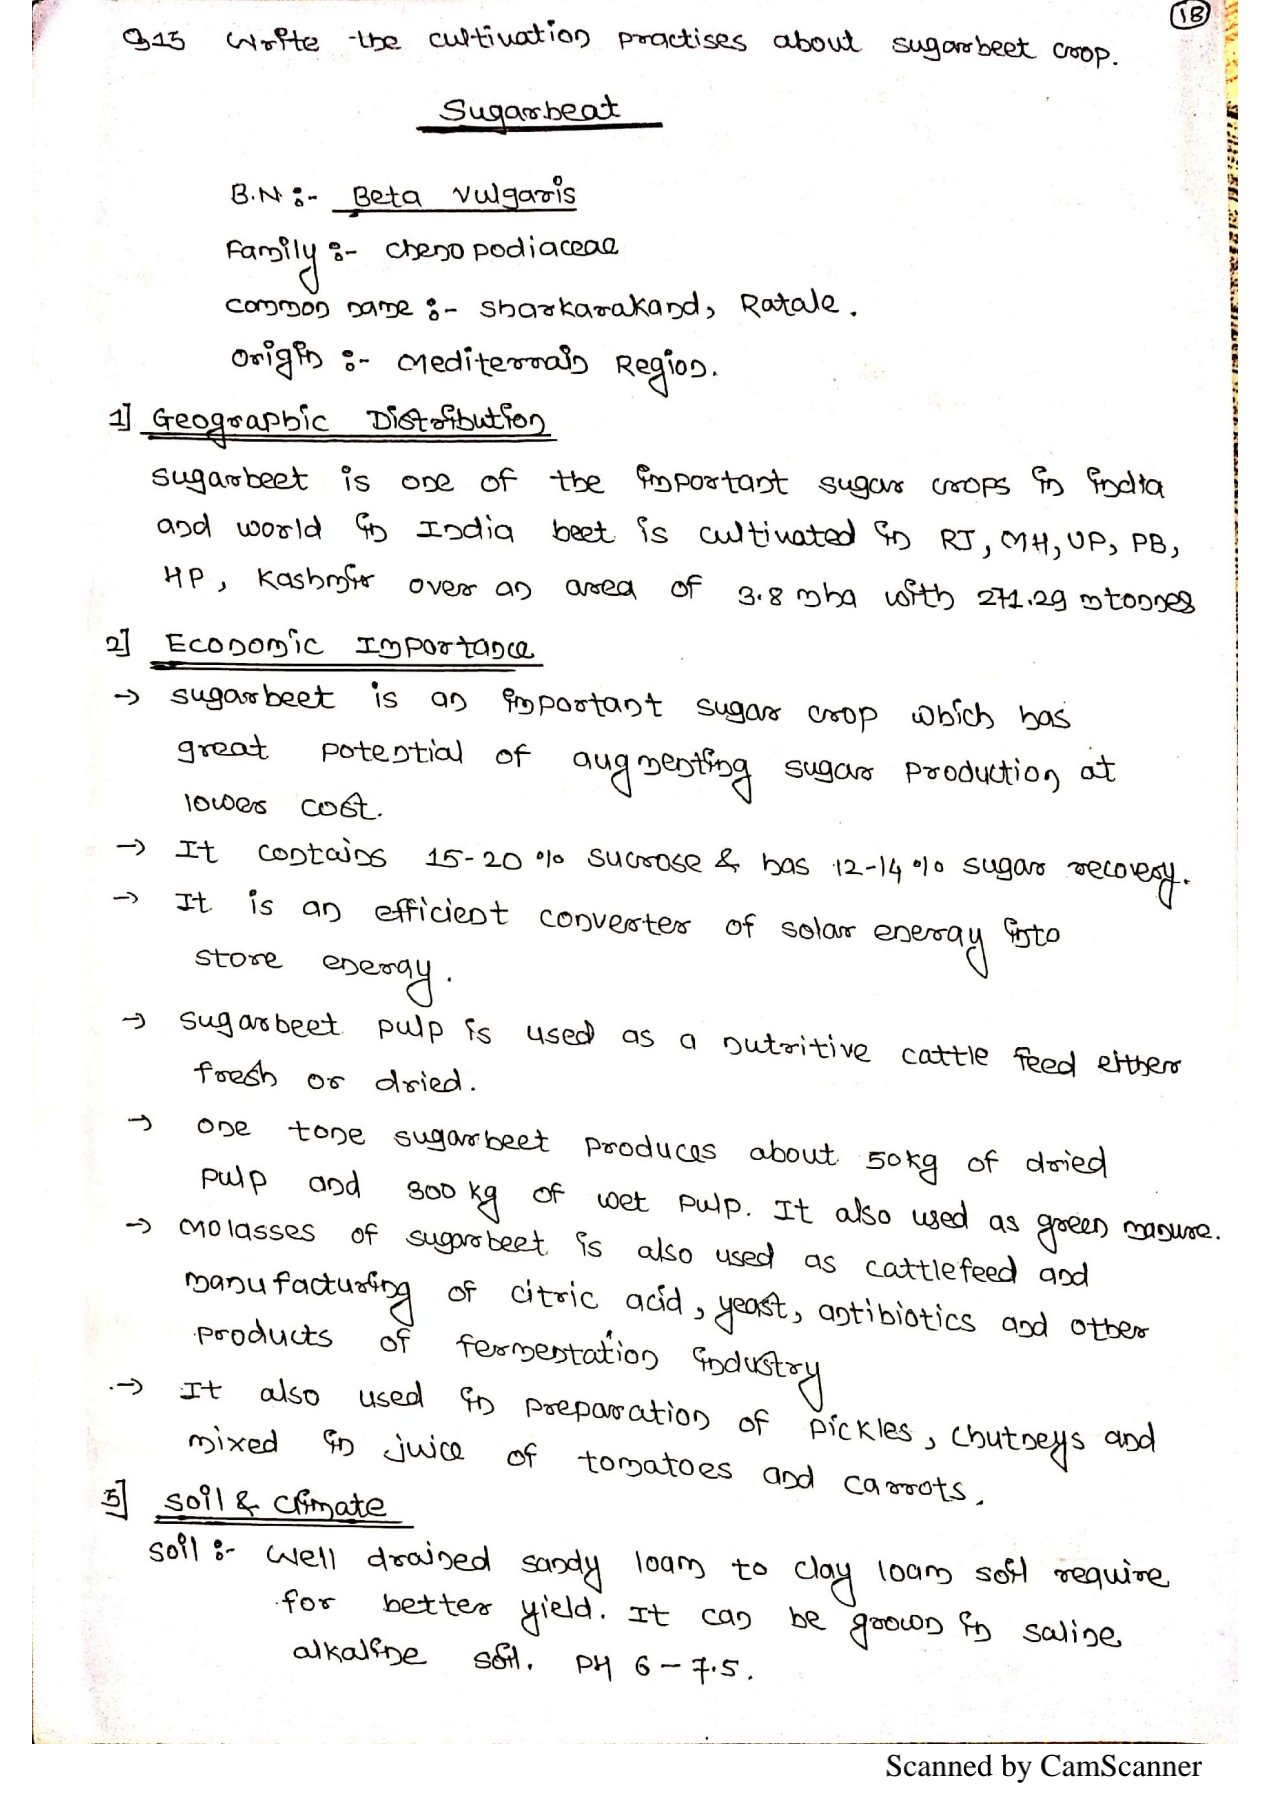 18
Q15 Write the cultivation practises about sugarbeet crop.
Sugarbeat
B.N :- Beta vulgaris
Family :- chenopodiaceae
common name :- sharkarakand, Ratale.
Origin :- Mediterrain Region.
1] Geographic Distribution
sugarbeet is one of the important sugar crops in india
and world in India beet is cultivated in RJ, MH, UP, PB,
HP, Kashmir over an area of 3.8 mha with 271.29 mtonnes
2] Economic Importance
→ sugarbeet is an important sugar crop which has
great potential of augmenting sugar production at
lower cost.
→ It contains 15-20 % sucrose & has 12-14 % sugar recovery.
→ It is an efficient converter of solar energy into
store energy.
→ sugarbeet pulp is used as a nutritive cattle feed either
fresh or dried.
→ one tone sugarbeet produces about 50kg of dried
pulp and 300 kg of wet pulp. It also used as green manure.
→ Molasses of sugarbeet is also used as cattlefeed and
manufacturing of citric acid, yeast, antibiotics and other
products of fermentation industry
→ It also used in preparation of pickles, chutneys and
mixed in juice of tomatoes and carrots.
3] soil & climate
soil :- Well drained sandy loam to clay loam soil require
for better yield. It can be grown in saline
alkaline soil. PH 6 - 7.5.
Scanned by CamScanner